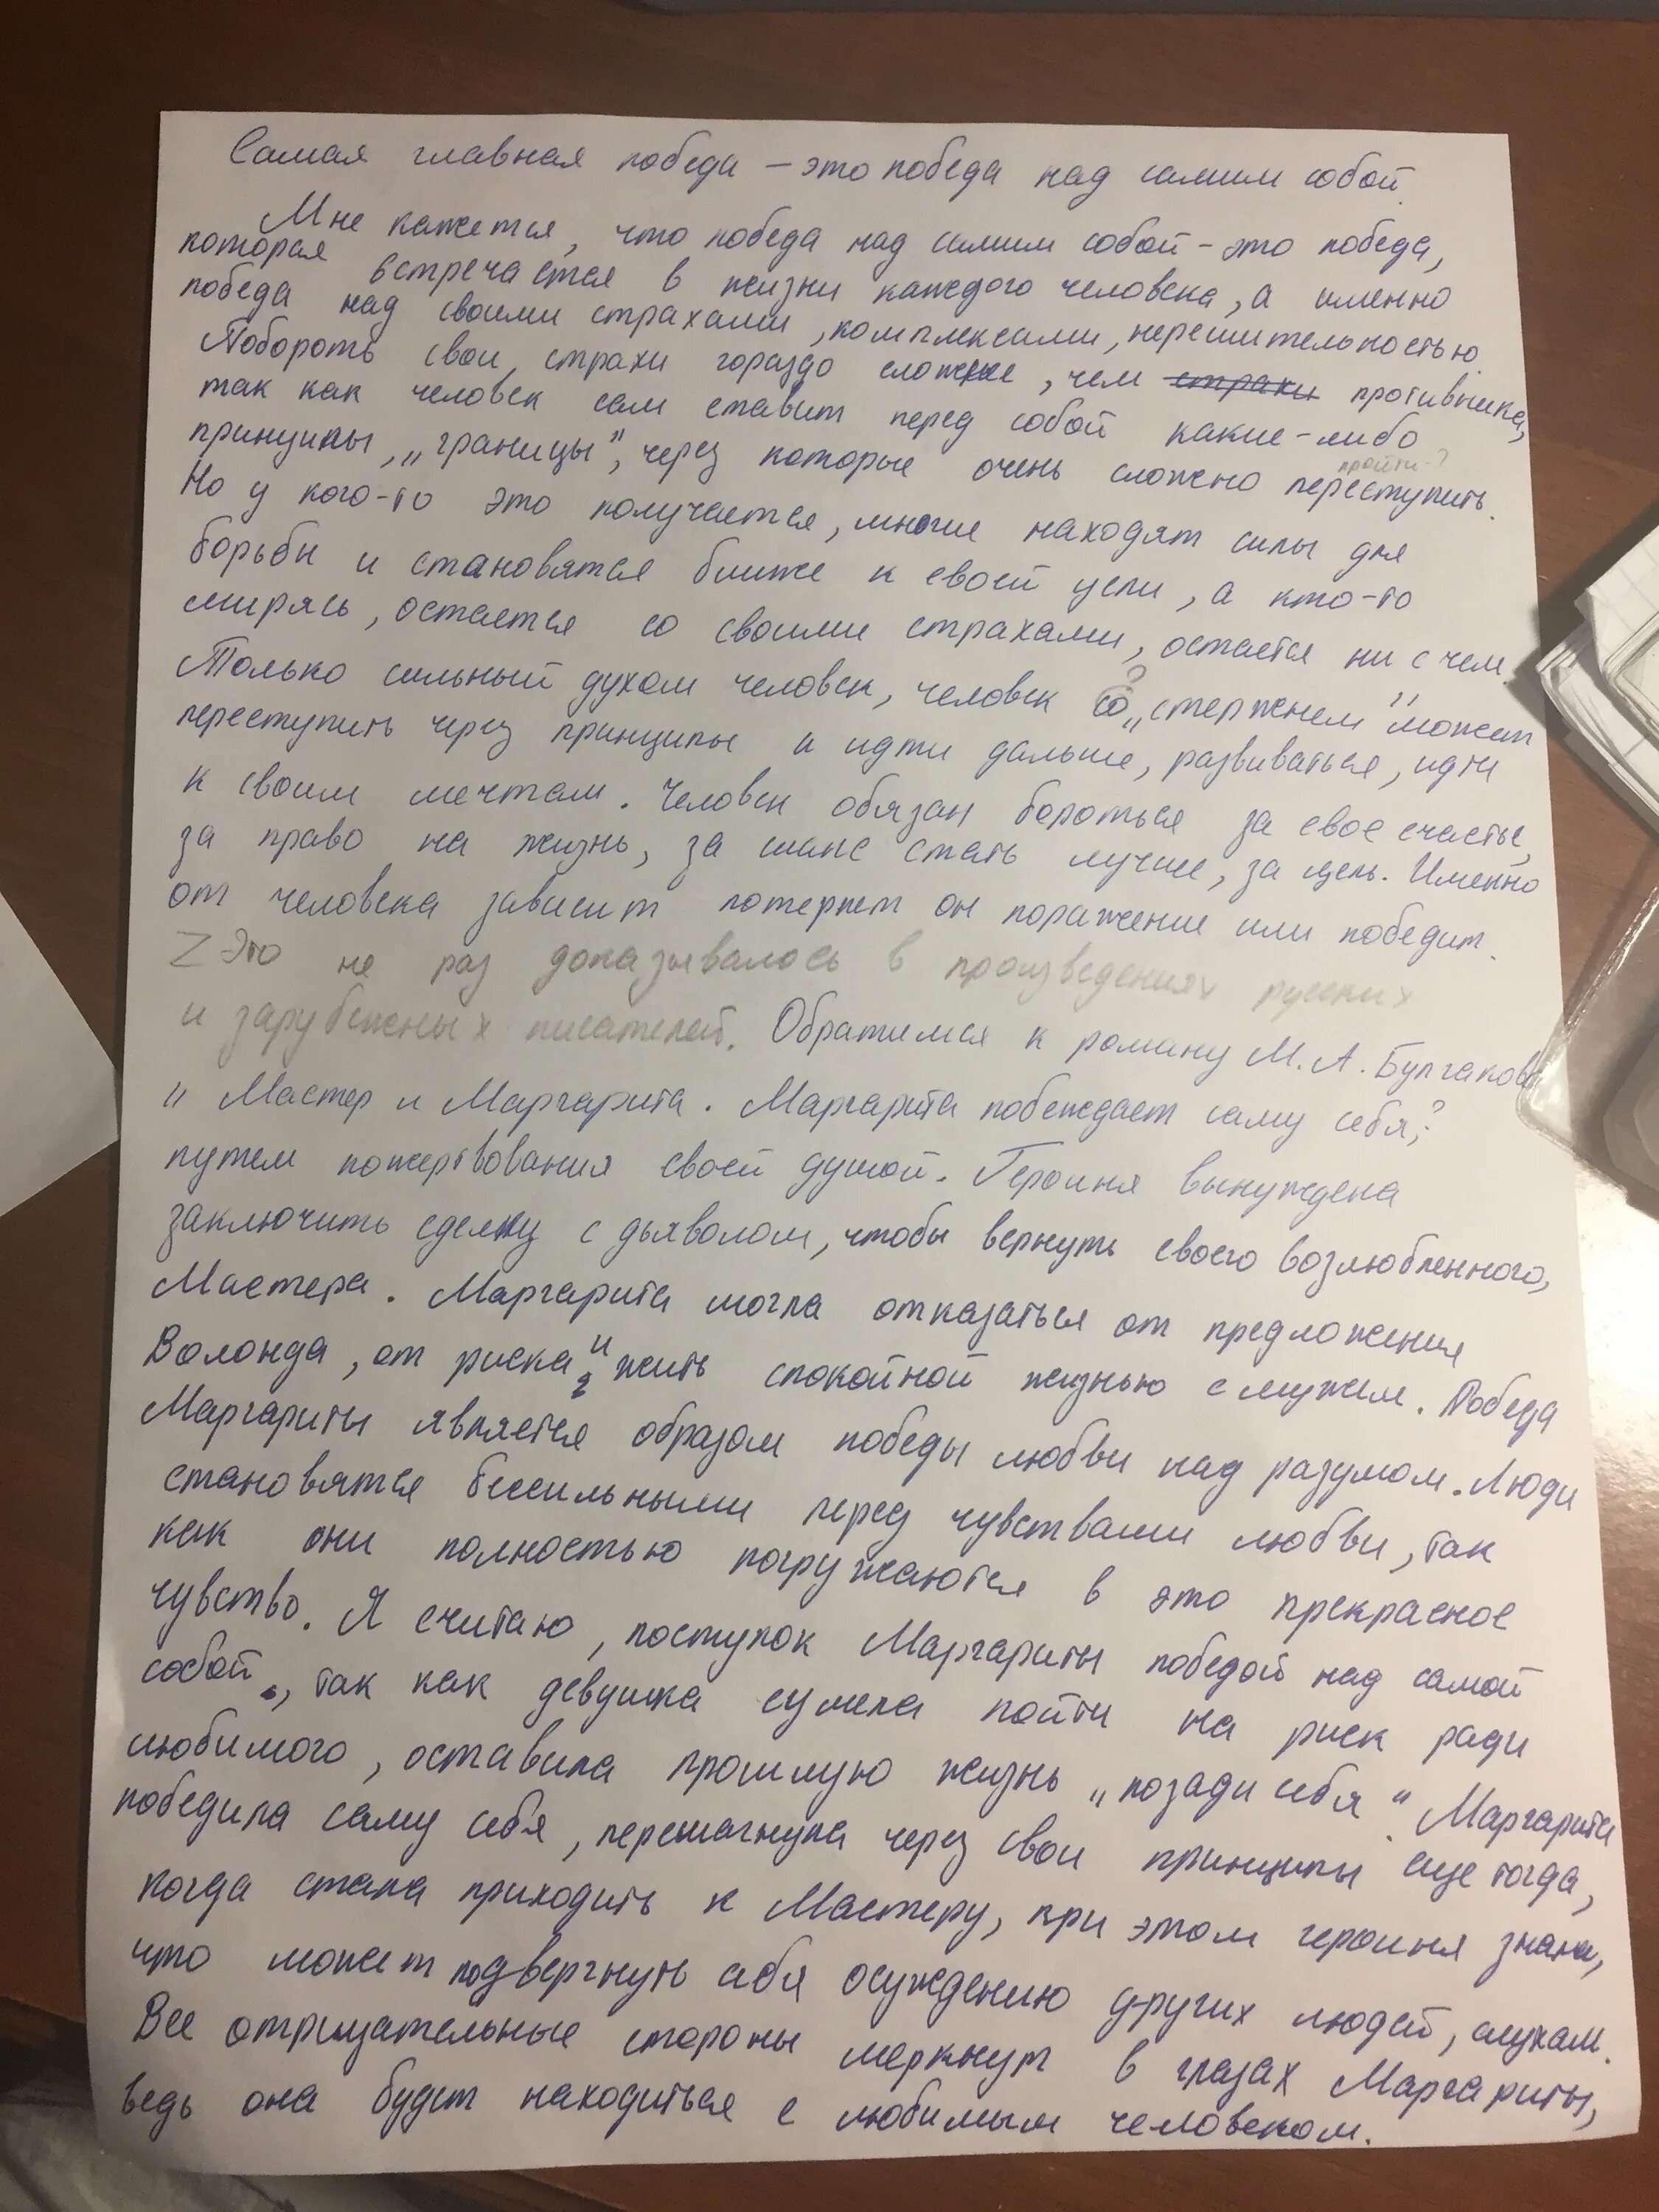 Самая главная победа – это победа над самим собой.
Мне кажется, что победа над самим собой – это победа,
которая встречается в жизни каждого человека, а именно
победа над своими страхами, комплексами, нерешительностью.
Побороть свои страхи гораздо сложнее, чем страхи противника,
так как человек сам ставит перед собой какие-либо
принципы, „границы", через которые очень сложно переступить.
пройти-?
Но у кого-то это получается, многие находят силы для
борьбы и становятся ближе к своей цели, а кто-то
мирясь, остается со своими страхами, остается ни с чем.
Только сильный духом человек, человек со „стержнем" может
?
переступить через принципы и идти дальше, развиваться, идти
к своим мечтам. Человек обязан бороться за свое счастье,
за право на жизнь, за шанс стать лучше, за цель. Именно
от человека зависит потерпит он поражение или победит.
Z Это не раз доказывалось в произведениях русских
и зарубежных писателей. Обратимся к роману М.А. Булгакова
" Мастер и Маргарита. Маргарита побеждает саму себя,?
путем пожертвования своей душой. Героиня вынуждена
заключить сделку с дьяволом, чтобы вернуть своего возлюбленного,
Мастера. Маргарита могла отказаться от предложения
Волонда, от риска и жить спокойной жизнью с мужем. Победа
Маргариты является образом победы любви над разумом. Люди
становятся бессильными перед чувствами любви, так
как они полностью погружаются в это прекрасное
чувство. Я считаю, поступок Маргариты победой над самой
собой, так как девушка сумела пойти на риск ради
любимого, оставила прошлую жизнь „позади себя". Маргарита
победила саму себя, перешагнула через свои принципы еще тогда,
когда стала приходить к Мастеру, при этом героиня знала,
что может подвергнуть себя осуждению других людей, слухам.
Все отрицательные стороны меркнут в глазах Маргариты,
ведь она будет находиться с любимым человеком.